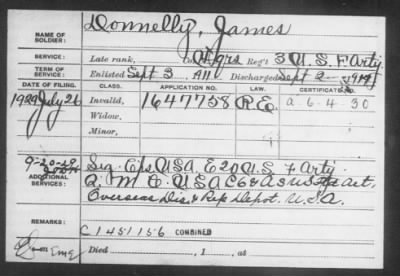 NAME OF SOLDIER: Donnelly, James
SERVICE: Late rank, Co. Hqrs Reg't 3 U.S. F. Arty.
TERM OF SERVICE: Enlisted Sept 3, 1911 Discharged Sept 2 1914
DATE OF FILING. CLASS. APPLICATION NO. CERTIFICATE NO.
1929 July 26 Invalid, 1647758 R.E. a-6-4-30
Widow,
Minor,
9-20-29
ADDITIONAL SERVICES: Sig. Eps USA, E 20 U.S. F Arty.
Q. M. C. USA C 6 & A 3 US Fd Art.
Overseas Dis & Rep Depot. U.S.A.
REMARKS: C 1 451 156 COMBINED
Died , 1 , at